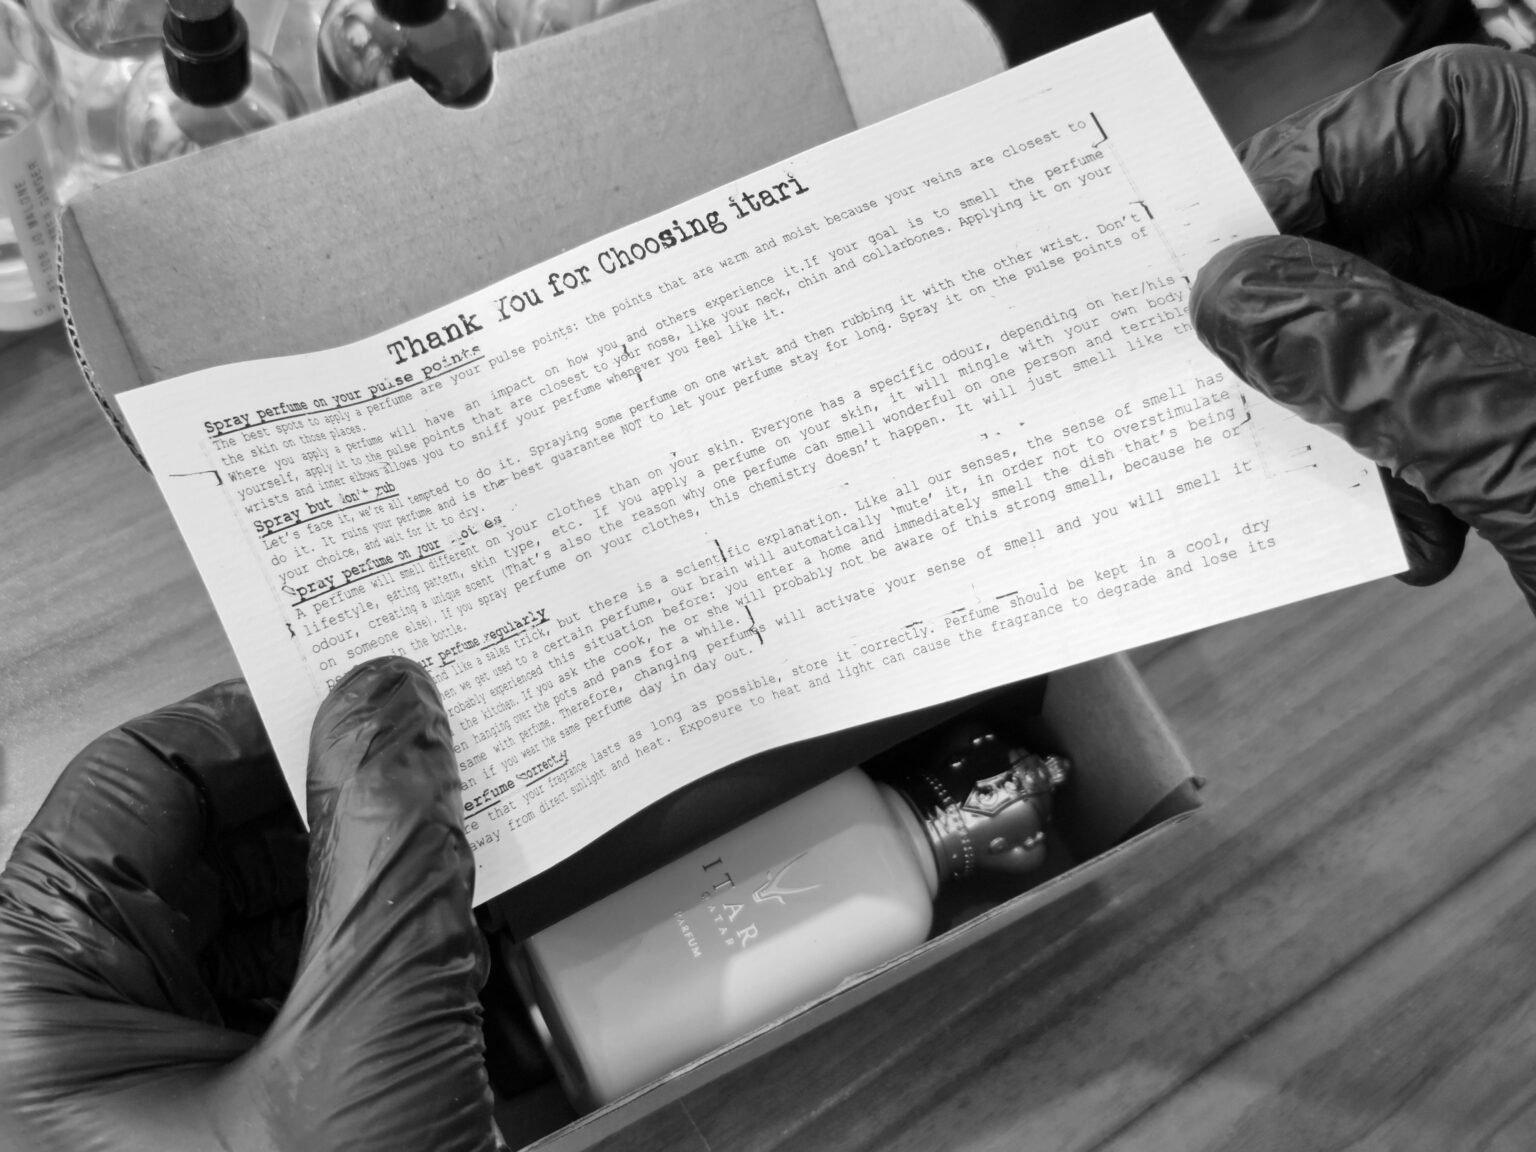 Thank You for Choosing itari
Spray perfume on your pulse points
The best spots to apply a perfume are your pulse points: the points that are warm and moist because your veins are closest to
the skin on those places.
Where you apply a perfume will have an impact on how you and others experience it.If your goal is to smell the perfume
yourself, apply it to the pulse points that are closest to your nose, like your neck, chin and collarbones. Applying it on your
wrists and inner elbows allows you to sniff your perfume whenever you feel like it.
Spray but don't rub
Let's face it, we're all tempted to do it. Spraying some perfume on one wrist and then rubbing it with the other wrist. Don't
do it. It ruins your perfume and is the best guarantee NOT to let your perfume stay for long. Spray it on the pulse points of
your choice, and wait for it to dry.
Spray perfume on your
A perfume will smell different on your clothes than on your skin. Everyone has a specific odour, depending on her/his
lifestyle, eating pattern, skin type, etc. If you apply a perfume on your skin, it will mingle with your own body
odour, creating a unique scent (That's also the reason why one perfume can smell wonderful on one person and terrible
on someone else). If you spray perfume on your clothes, this chemistry doesn't happen. It will just smell like
in the bottle.
perfume regularly
like a sales trick, but there is a scientific explanation. Like all our senses, the sense of smell has
we get used to a certain perfume, our brain will automatically 'mute' it, in order not to overstimulate
experienced this situation before: you enter a home and immediately smell the dish that's being
the kitchen. If you ask the cook, he or she will probably not be aware of this strong smell, because he or
hanging over the pots and pans for a while.
same with perfume. Therefore, changing perfumes will activate your sense of smell and you will smell it
if you wear the same perfume day in day out.
correctly
that your fragrance lasts as long as possible, store it correctly. Perfume should be kept in a cool, dry
away from direct sunlight and heat. Exposure to heat and light can cause the fragrance to degrade and lose its
ITAR
QATAR
PARFUM